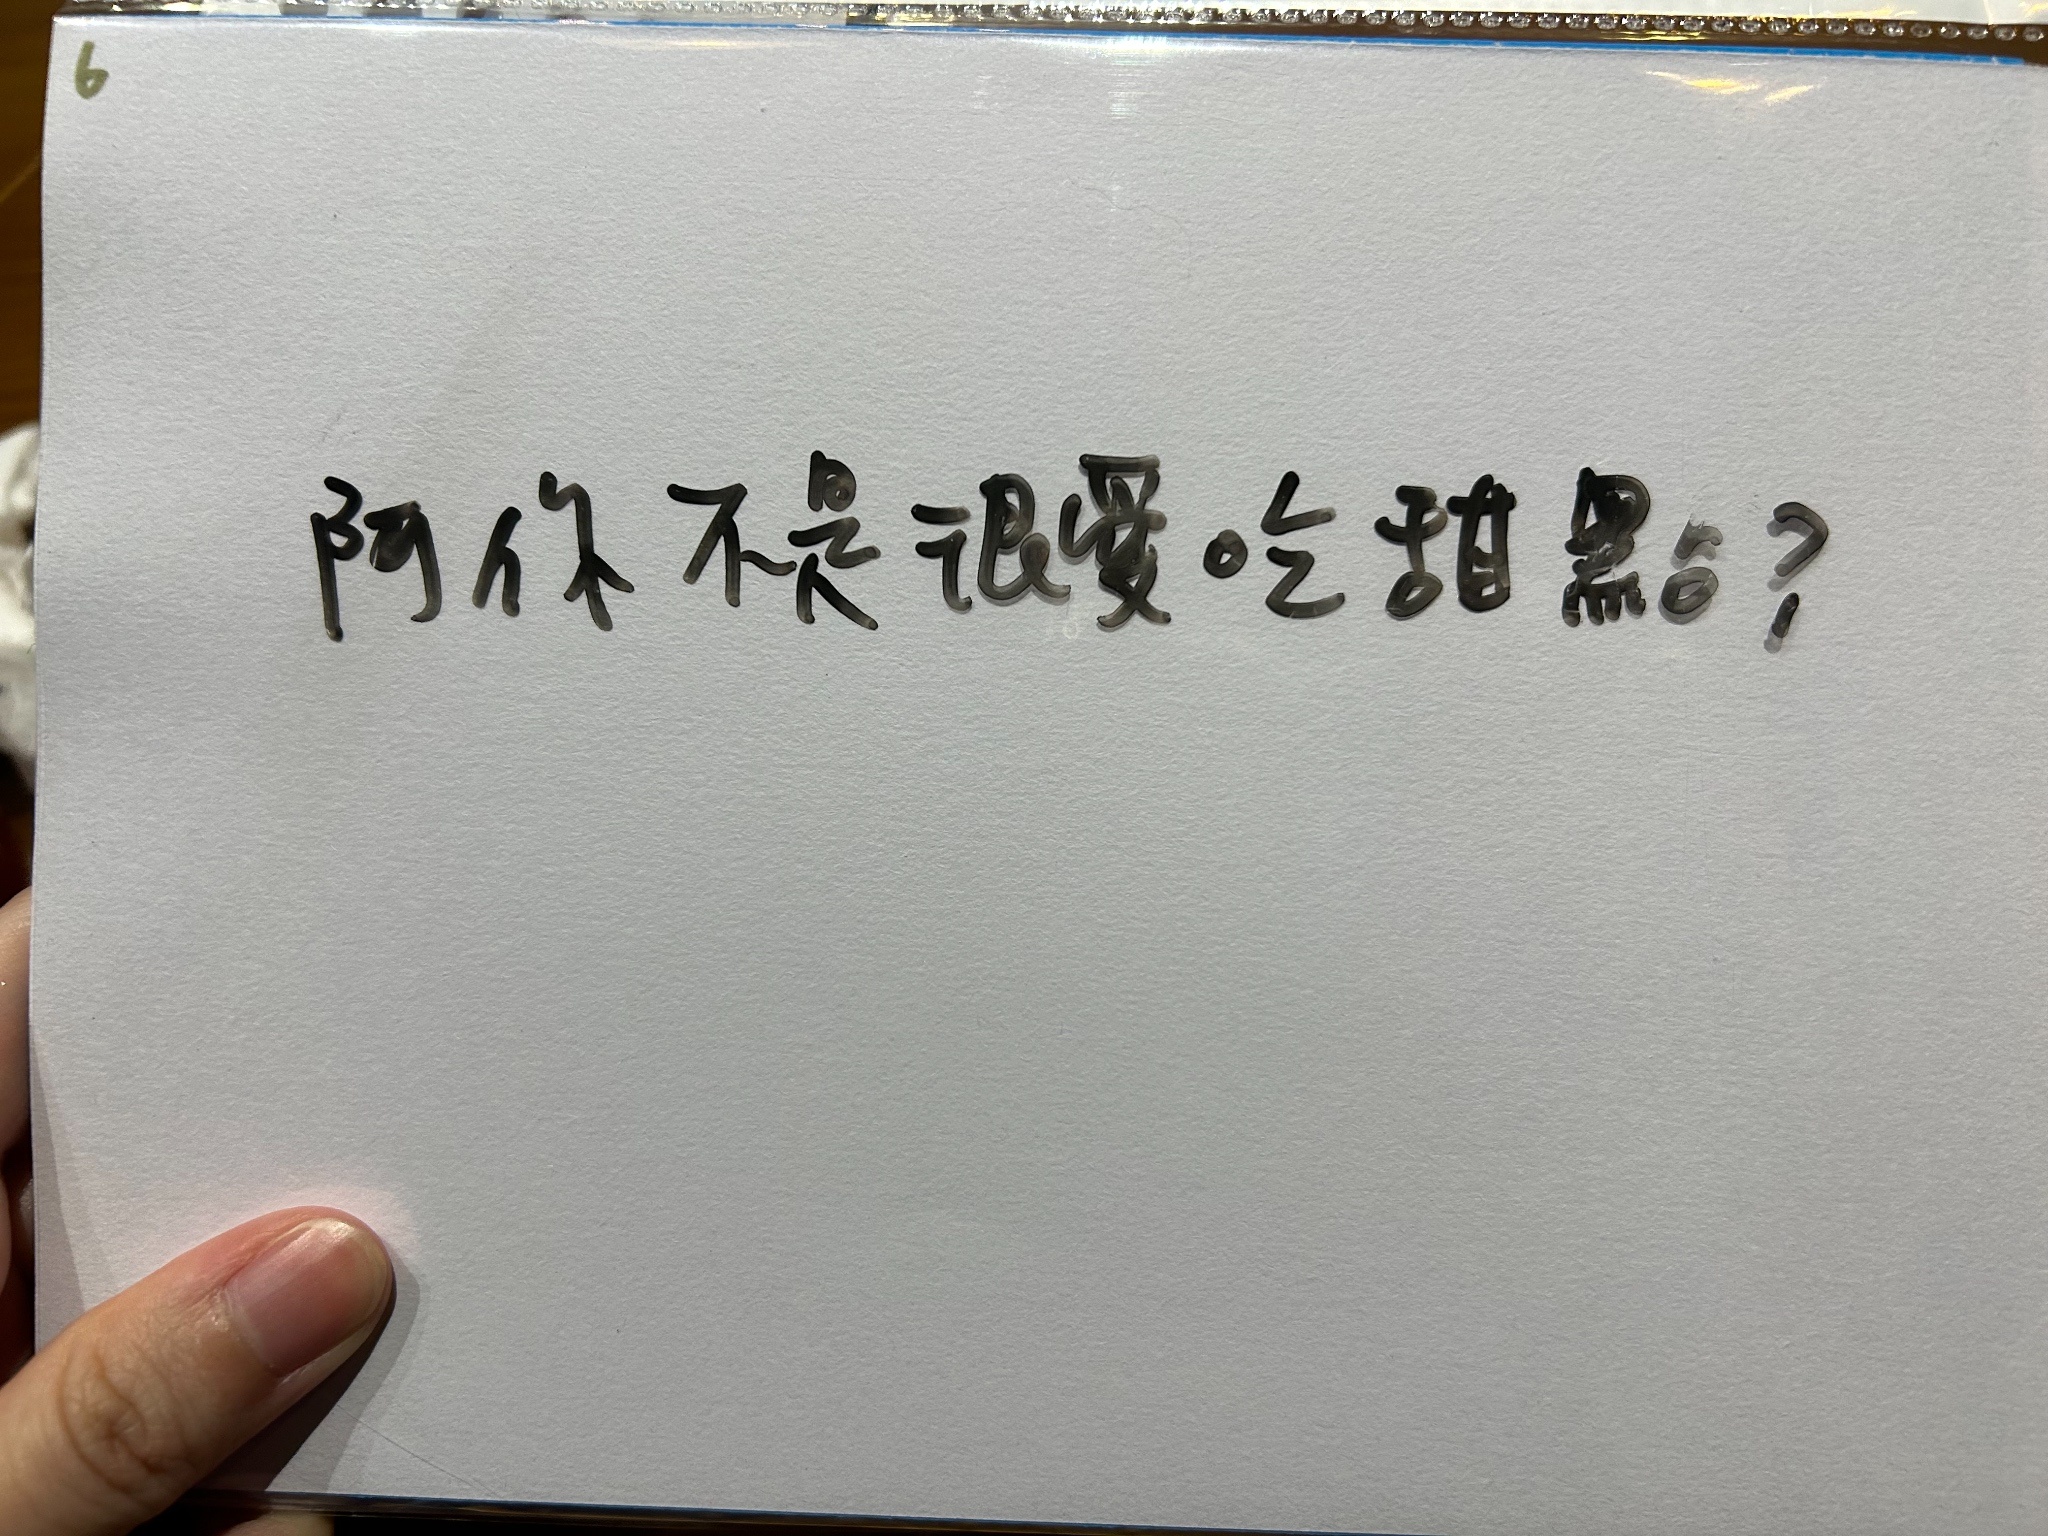 6
阿你不是很愛吃甜點?